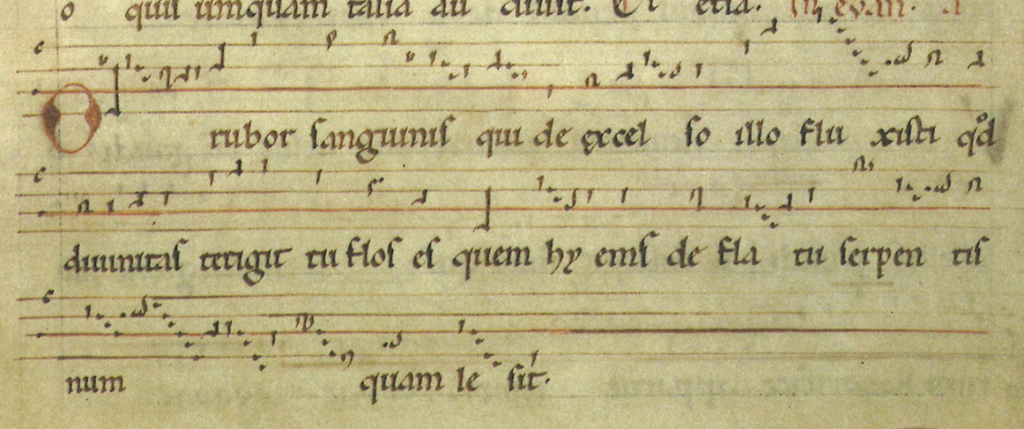 o quil umquam talia au diuit. Et etia. In euan. a
O rubor sanguinis qui de excel so illo flu xisti qd
diuinitas tetigit tu flos es quem hy ems de fla tu serpen tis
num quam le sit.